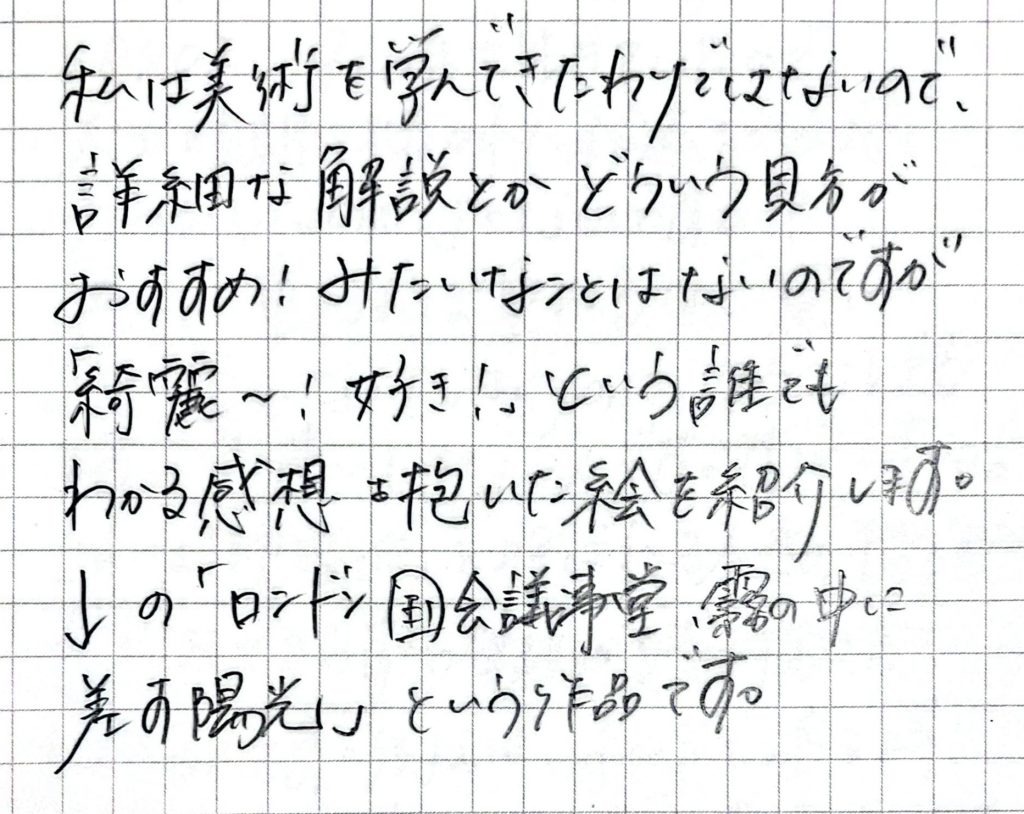 私は美術を学んできたわけではないので、
詳細な解説とか どういう見方が
おすすめ! みたいなことはないのですが
「綺麗~! 好き!」という誰でも
わかる感想を抱いた絵を紹介します。
↓の「ロンドン国会議事堂、霧の中に
差す陽光」という作品です。